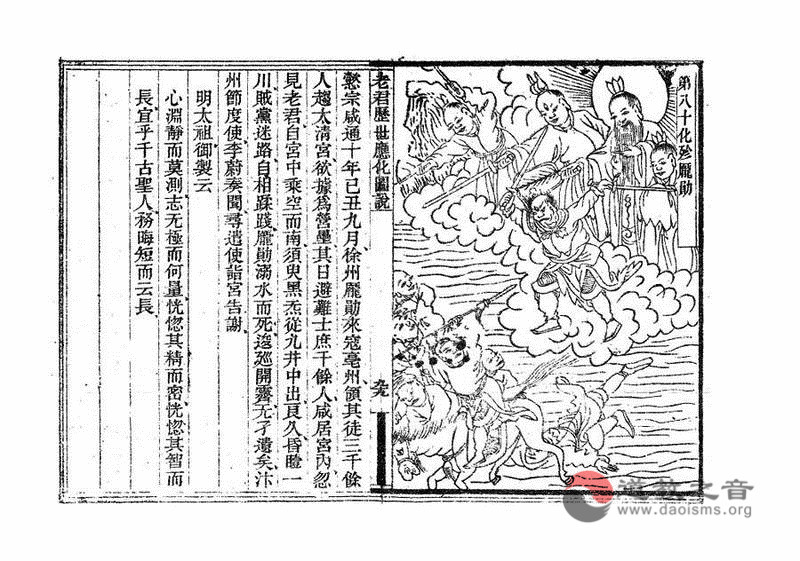 第八十化殄龐勛
老君歷世應化圖說
懿宗咸通十年己丑九月徐州龐勛來寇亳州領其徒三千餘
人趨太清宮欲據爲營壘其日避難士庶千餘人咸居宮內忽
見老君自宮中乘空而南須臾黑炁從九井中出良久昏曀一
川賊黨迷路自相蹂踐龐勛溺水而死逡廵開霽无孑遺矣汴
州節度使李蔚奏聞尋遣使詣宮告謝
明太祖御製云
心淵靜而莫測志无極而何量恍惚其精而密恍惚其智而
長宜乎千古聖人務晦短而云長
道教之音
www.daoisms.org